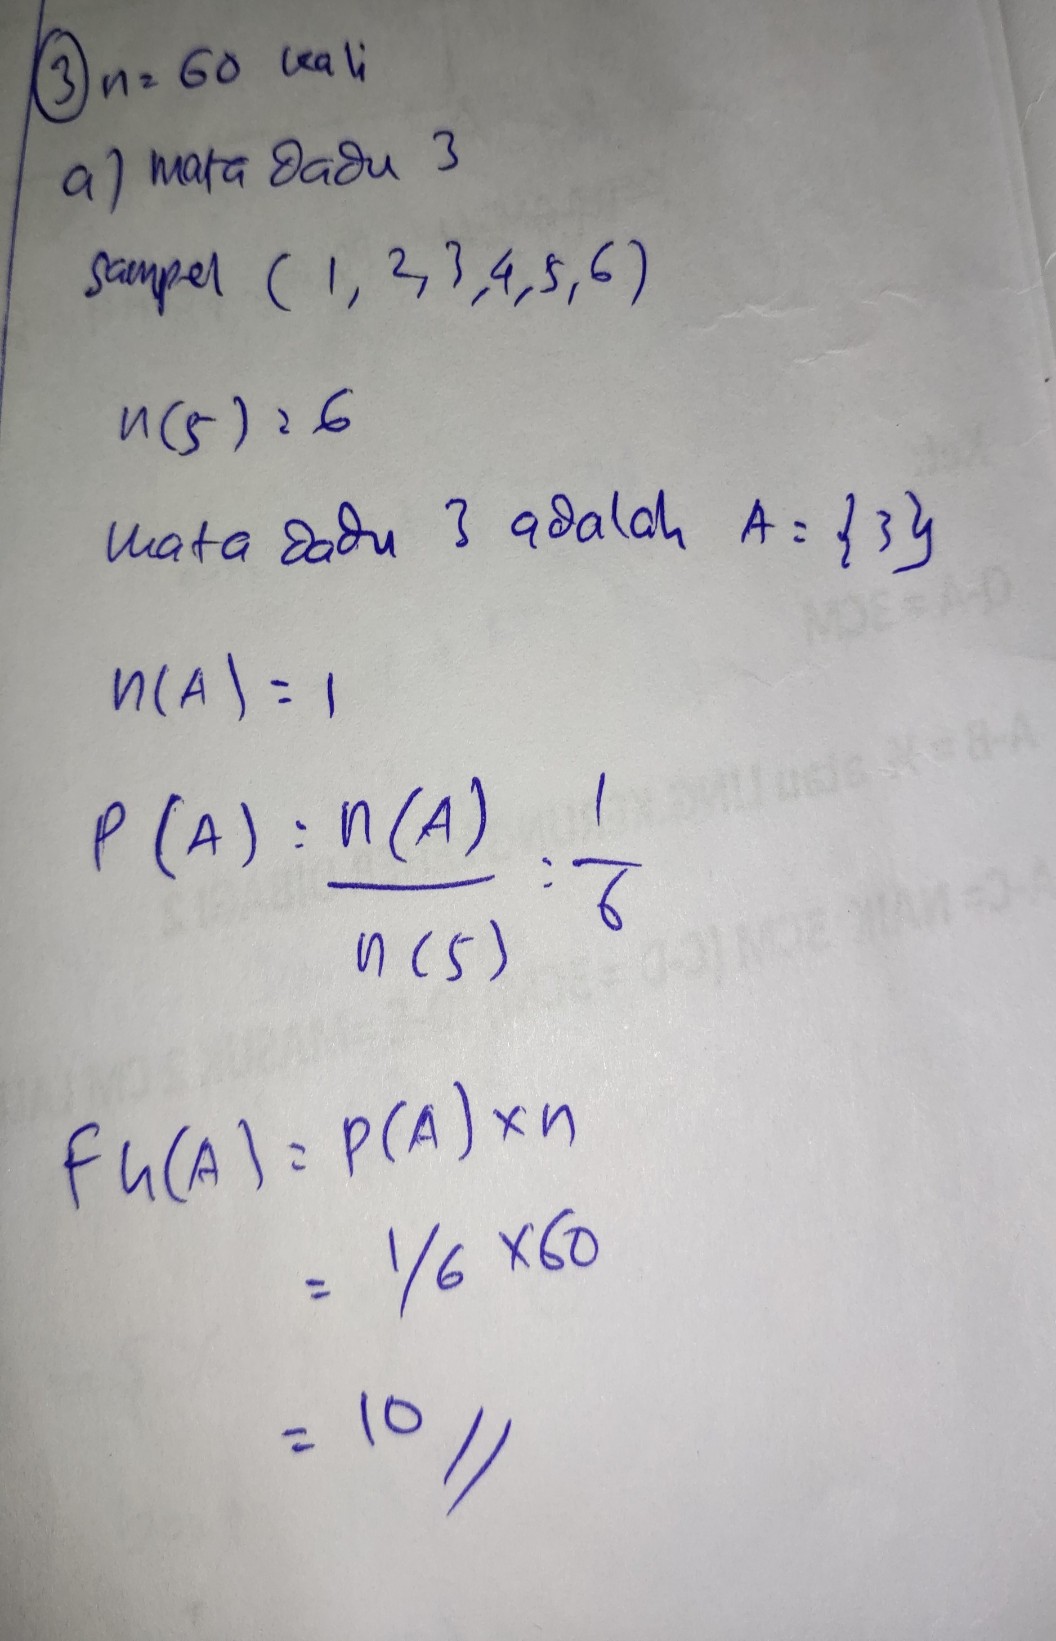 3 n = 60 kali
a) mata dadu 3
Sampel ( 1, 2, 3, 4, 5, 6 )
n(S) = 6
mata dadu 3 adalah A = {3}
n(A) = 1
P (A) = n(A) / n(S) = 1/6
Fh(A) = P(A) x n
= 1/6 x 60
= 10 //
O-A = 3CM